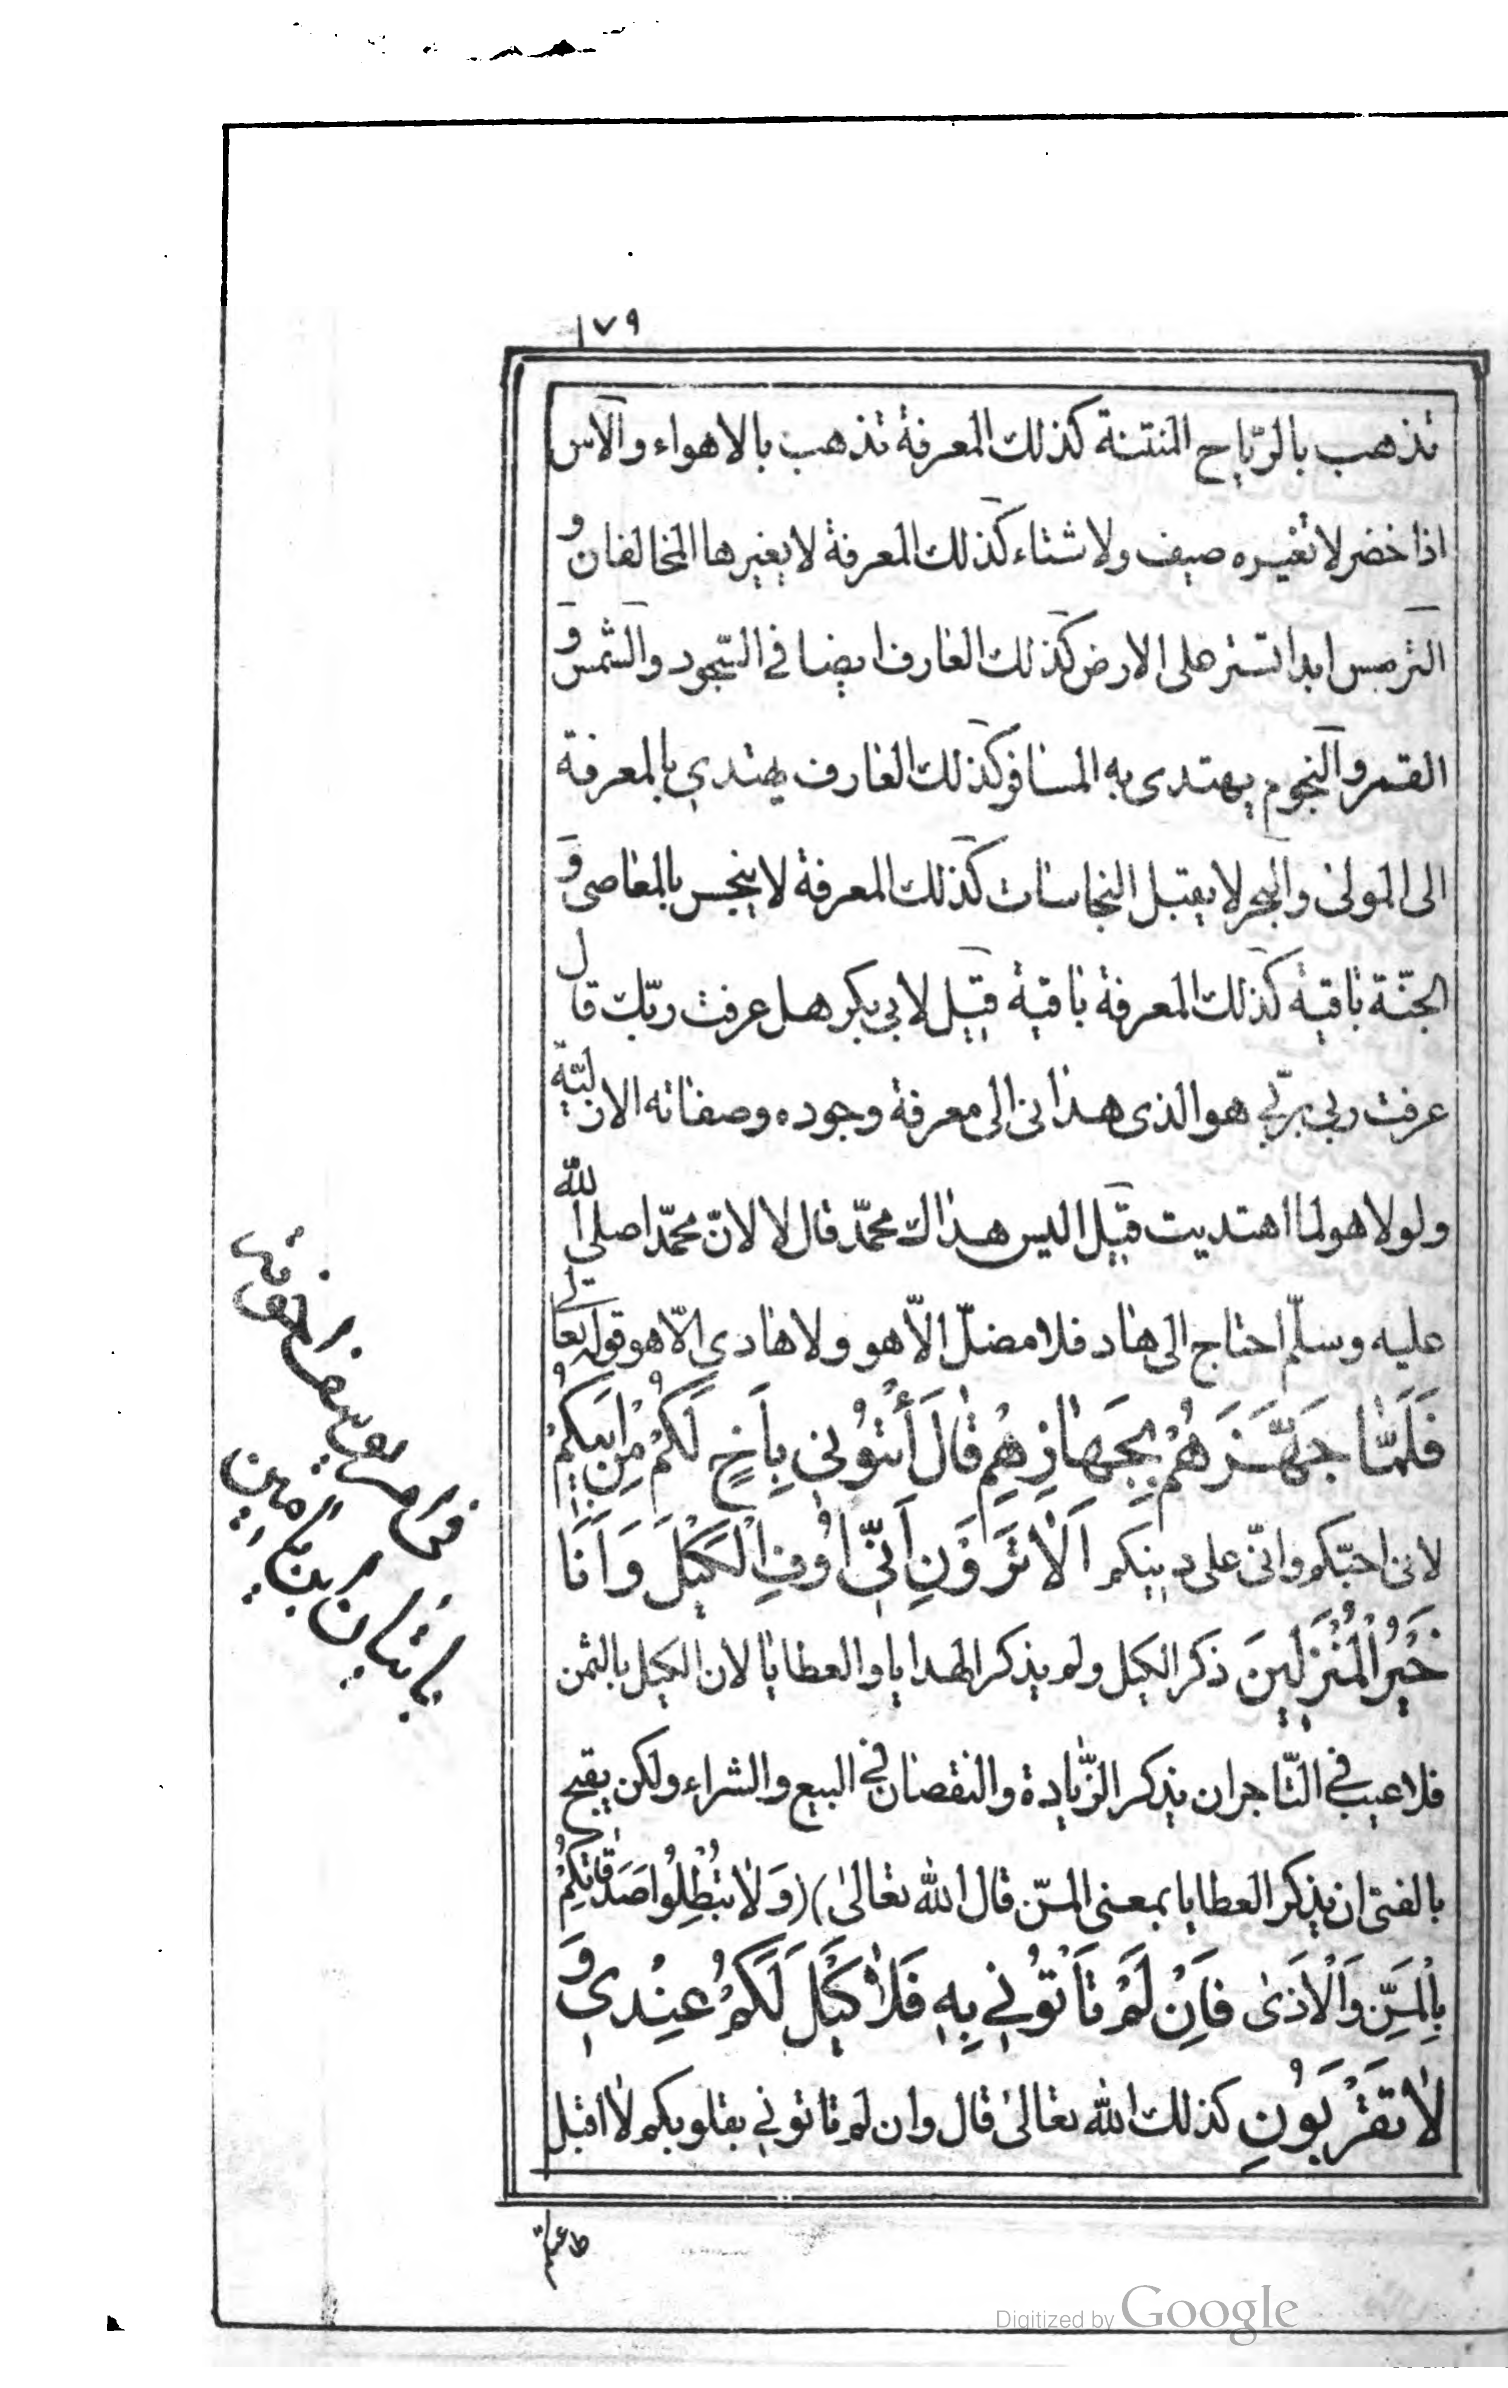 ١٧٩
تذهب بالرّياح المنتنة كذلك المعرفة تذهب بالاهواء والآس
اذا خضر لا تغيره صيف ولا شتاء كذلك المعرفة لا يغيرها المخالفان و
النرجس ابدا تستر على الارض كذلك العارف ايضا في السّجود والشمس و
القمر والنجوم يهتدى به المسافر كذلك العارف يهتدي بالمعرفة
الى المولى والبحر لا يقبل النجاسات كذلك المعرفة لا ينجس بالمعاصى و
الجنّة باقية كذلك المعرفة باقية قيل لابي بكر هل عرفت ربّك قال
عرفت ربي بربّي هو الذى هدانى الى معرفة وجوده وصفاته الازليّة
ولولا هو لما اهتديت قيل اليس هداك محمّد قال لا لانّ محمّدا صلى الله
عليه وسلّم احتاج الى هاد فلا مضلّ الّا هو ولا هادى الّا هو قوله تعالى
فَلَمَّا جَهَّزَهُمْ بِجَهَازِهِمْ قَالَ أْئتُوُنِي بِاَخٍ لَكُمْ مِنْ اَبِيكُمْ
لانى احبّكم وانّى على دينكم اَلَا تَرَوْنَ اَنِّي اُوُفِ الْكَيْلَ وَاَنَا
خَيْرُ الْمُنْزِلِينَ ذكر الكيل ولم يذكر الهدايا والعطايا لان الكيل بالثمن
فلا عيب في التّاجر ان يذكر الزّيادة والنقصان في البيع والشراء ولكن يقبح
بالفتى ان يذكر العطايا بمعنى المنّ قال الله تعالى) (وَلَا تُبْطِلُوا صَدَقَاتِكُمْ
بِالْمَنِّ وَالْاَذَى فَاِنْ لَمْ تَاْتُوُنِي بِهِ فَلَا كَيْلَ لَكُمْ عِنْدِي وَ
لَا تَقْرَبُونِ كذلك الله تعالى قال وان لم تاتوني بقلوبكم لا اقبل
طاعتكم
فى امر يوسف اخوته
باتيان ابن يامين
Digitized by Google